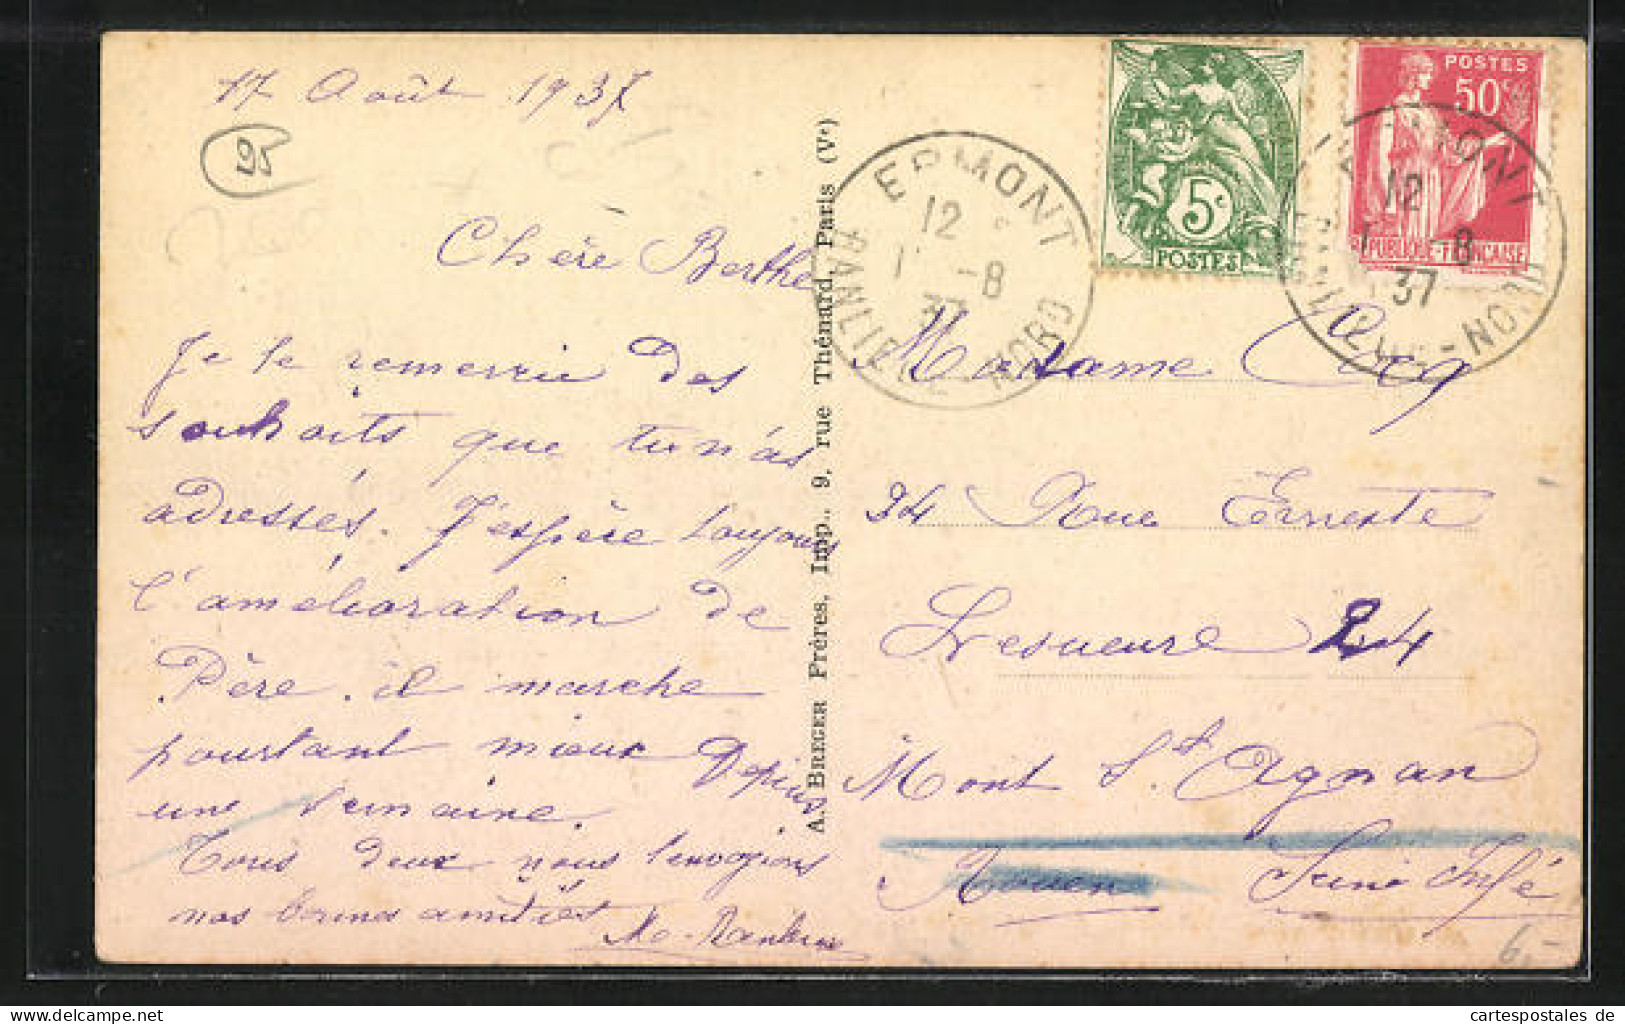 17 Août 1937
95
Chère Berthe
Je te remercie des
souhaits que tu n'as
adressés. J'espère toujours
l'amélioration de
Père. il marche
pourtant mieux Depuis
une semaine.
Tous deux nous t'envoyons
nos bonnes amitiés
A. BREGER Frères, Imp., 9, rue Thénard, Paris (Vᵉ)
ERMONT
12
1 -8
37
BANLIEUE NORD
5ᶜ
POSTES
POSTES
50ᶜ
RÉPUBLIQUE-FRANÇAISE
12
1 -8
37
BANLIEUE-NORD
Madame
24 Rue Erneste
Lesueure 24
Mont Sᵗ Agnan
Rouen Seine Infé
6,-
cartespostales de